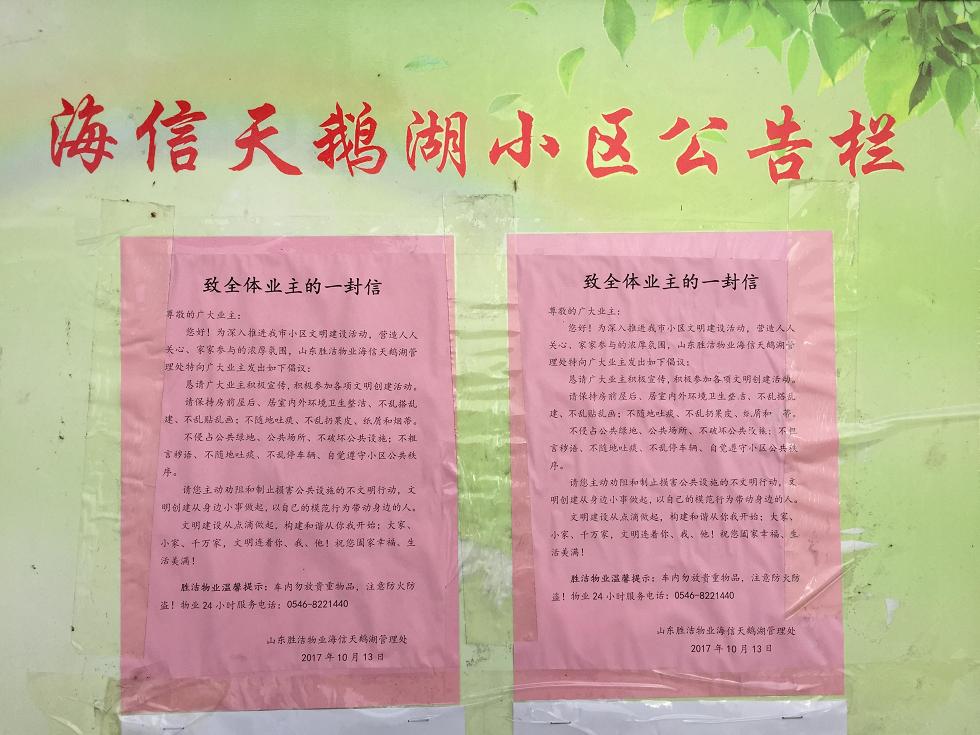 海信天鹅湖小区公告栏
致全体业主的一封信
尊敬的广大业主：
您好！为深入推进我市小区文明建设活动，营造人人
关心、家家参与的浓厚氛围，山东胜洁物业海信天鹅湖管
理处特向广大业主发出如下倡议：
恳请广大业主积极宣传，积极参加各项文明创建活动。
请保持房前屋后、居室内外环境卫生整洁、不乱搭乱
建、不乱贴乱画；不随地吐痰、不乱扔果皮、纸屑和烟蒂。
不侵占公共绿地、公共场所、不破坏公共设施；不粗
言秽语、不随地吐痰、不乱停车辆、自觉遵守小区公共秩
序。
请您主动劝阻和制止损害公共设施的不文明行动，文
明创建从身边小事做起，以自己的模范行为带动身边的人。
文明建设从点滴做起，构建和谐从你我开始；大家、
小家、千万家，文明连着你、我、他！祝您阖家幸福、生
活美满！
胜洁物业温馨提示：车内勿放贵重物品，注意防火防
盗！物业24小时服务电话：0546-8221440
山东胜洁物业海信天鹅湖管理处
2017年10月13日
致全体业主的一封信
尊敬的广大业主：
您好！为深入推进我市小区文明建设活动，营造人人
关心、家家参与的浓厚氛围，山东胜洁物业海信天鹅湖管
理处特向广大业主发出如下倡议：
恳请广大业主积极宣传，积极参加各项文明创建活动。
请保持房前屋后、居室内外环境卫生整洁、不乱搭乱
建、不乱贴乱画；不随地吐痰、不乱扔果皮、纸屑和 蒂。
不侵占公共绿地、公共场所、不破坏公共设施；不粗
言秽语、不随地吐痰、不乱停车辆、自觉遵守小区公共秩
序。
请您主动劝阻和制止损害公共设施的不文明行动，文
明创建从身边小事做起，以自己的模范行为带动身边的人。
文明建设从点滴做起，构建和谐从你我开始；大家、
小家、千万家，文明连着你、我、他！祝您阖家幸福、生
活美满！
胜洁物业温馨提示：车内勿放贵重物品，注意防火防
盗！物业24小时服务电话：0546-8221440
山东胜洁物业海信天鹅湖管理处
2017年10月13日